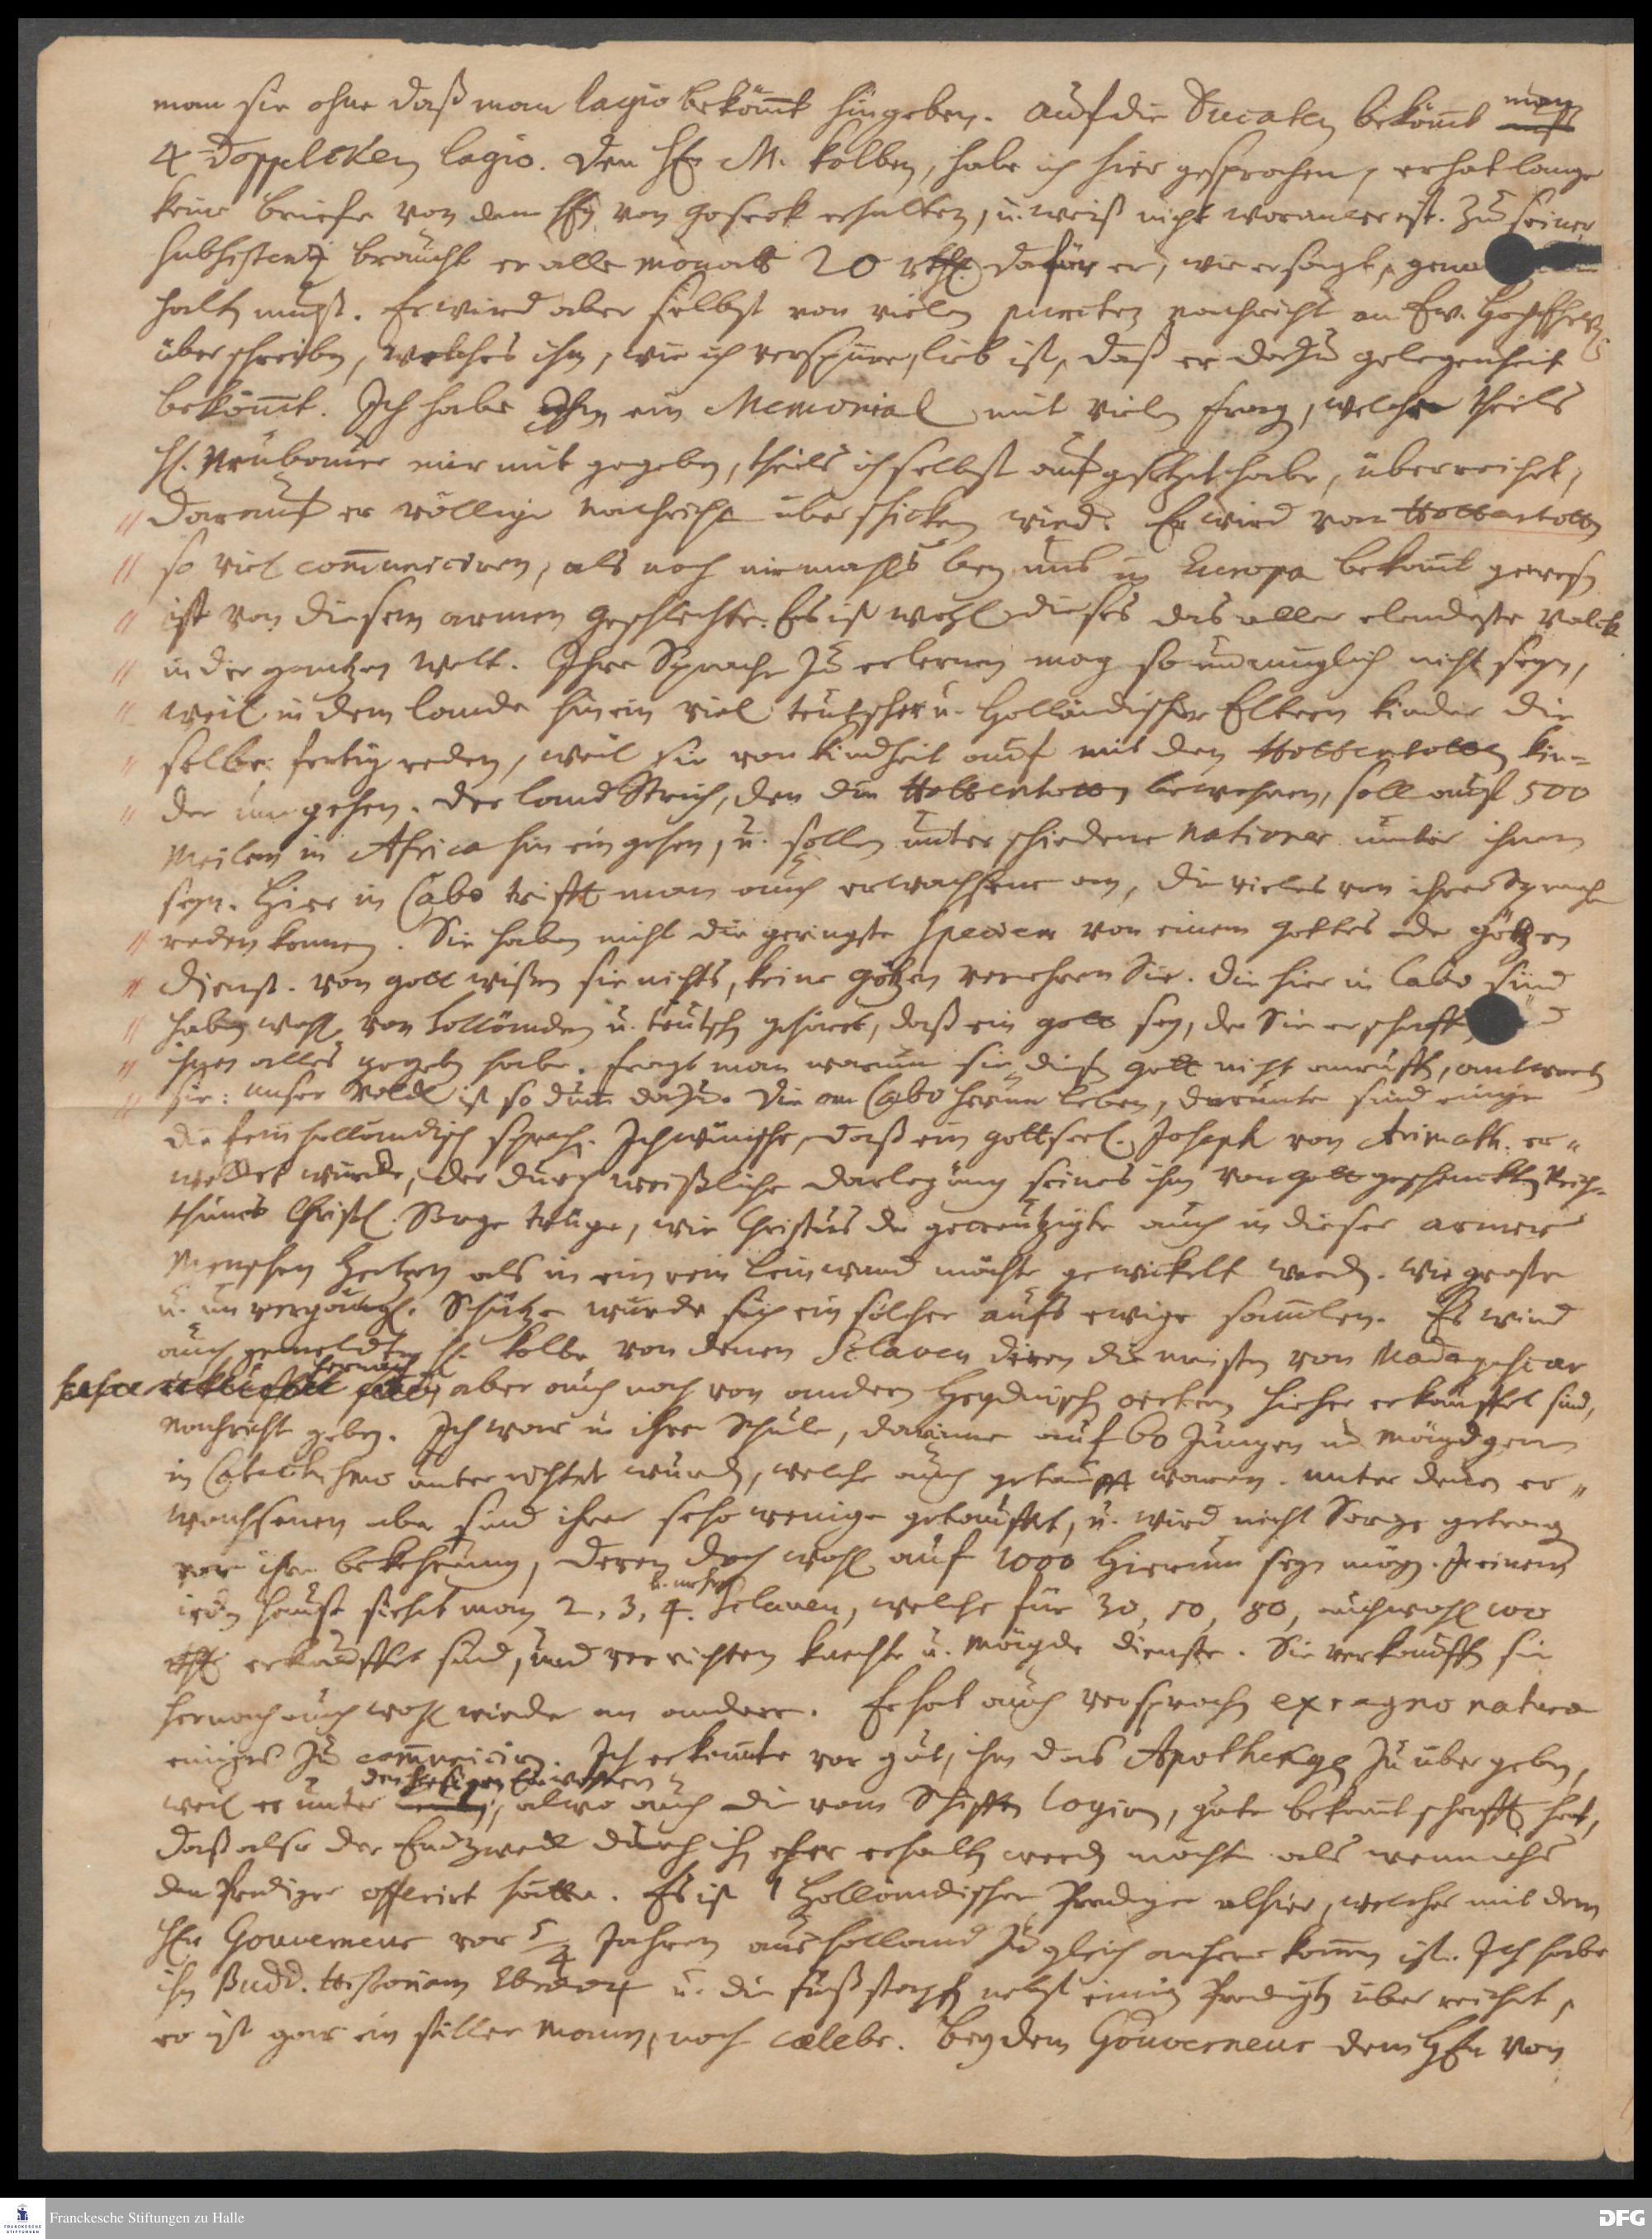 man sie ohne daß man lagio bekömt hingeben. Auf die Ducaten bekömt man
4 doppleken lagio. Den HE. M. Kolben, habe ich hier gesprochen, er hat lange
keine briefe von dem HEn von Goseck erhalten, u. weiß nicht woran er ist. Zu seiner
Subsistentz braucht er alle Monath 20 rthl. dafür er, wie er sagt, genau
halten muß. Er wird aber selbst von vielen puncten nachricht an Ew.
überschreiben, welches ihm, wie ich verspüre, lieb ist, daß er dazu gelegenheit
bekömt. Ich habe ihm ein Memorial mit vielen fragen, welche theils
H. Neubauer mir mit gegeben, theils ich selbst aufgesetzet habe, überreichet,
darauf er völlige nachricht überschicken wird. Er wird von Hottentotten
so viel communiciren, als noch niemahls bey uns in Europa bekant gewesen
ist von diesem armen geschlechte. Es ist wohl dieses das aller elendeste Volck
in der gantzen Welt. Ihre Sprache zu erlernen mag so unmüglich nicht seyn,
weil in dem lande hin ein viel teutscher u. Holländischer Eltern kinder die
selbe fertig reden, weil sie von kindheit auf mit den Hottentotten kin=
der umgehen. Der land Strich, den die Hottentotten bewohnen, soll auf 500
Meilen in Africa hin ein gehen, u. sollen unterschiedene Nationes unter ihnen
seyn. Hier in Cabo trifft man auch erwachsene an, die vieles von ihrer Sprache
reden können. Sie haben nicht die geringste Speciem von einem Gottes oder götzen
dienst. von gott wißen sie nichts, keine götzen verehren Sie. die hier in Cabo sind
haben wohl von Holländern u. teutschen gehöret, daß ein gott sey, der Sie erschaffen
ihnen alles gegeben habe. fragt man warum sie diesen gott nicht anruffen, antworten
sie: unser Volck ist so dum dazu. Die am Cabo herum leben, darunter sind einige
die fein holländisch sprechen. Ich wünsche, daß ein gottseel. Joseph von Arimath. er=
wecket würde, der durch weißliche darlegung seines ihm von gott geschenckten Reich=
thums Christl. Sorge trüge, wie Christus der gecreutzigte auch in dieser armen
Menschen Hertzen als in ein rein leinwand möchte gewickelt werden. Wie große
u. unvergängl. Schätze würde sich ein solcher aufs ewige samlen. Es wird
auch gemeldter H. Kolbe von denen Sclaven deren die meisten von Madagascar
hernach aber auch noch von andern Heydnischen oertern hieher erkauffet sind,
nachricht geben. Ich war in ihrer Schule, darinne auf 60 Jungen u. Mägdgen
in Catechismo unterrichtet wurden, welche auch getaufft waren. unter denen er=
wachsenen aber sind ihrer sehr wenige getauffet, u. wird nicht Sorge getragen
vor ihre bekehrung, deren doch wohl auf 1000 hierum seyn mögen. In einem
jeden hause siehet man 2, 3, 4. u. mehr Sclaven, welche für 30, 50, 80, auch wohl 100
rthl. erkauffet sind, und verrichten knechte u. mägde dienste. Sie verkauffen sie
hernach auch wohl wieder an andere. Er hat auch versprochen ex regno naturae
einiges zu communiciren. Ich erkannte vor gut, ihm das Apothekgen zu übergeben,
weil er unter den hiesigen Einwohnern, alwo auch die vom Schiffen logiren, gute bekantschafft hat,
daß also der Endzweck durch ihn eher erhalten werden möchte als wenn ichs
dem Prediger offerirt hätte. Es ist 1 Holländischer Prediger alhier, welcher mit dem
HEn Gouverneur vor 5/4 Jahren aus Holland zugleich anhero kommen ist. Ich habe
ihm Budd. Historiam u. die fußstapfen nebst einigen Predigten überreichet,
er ist gar ein stiller Mann, noch caelebs. Bey dem Gouverneur dem HEn von
Franckesche Stiftungen zu Halle
DFG